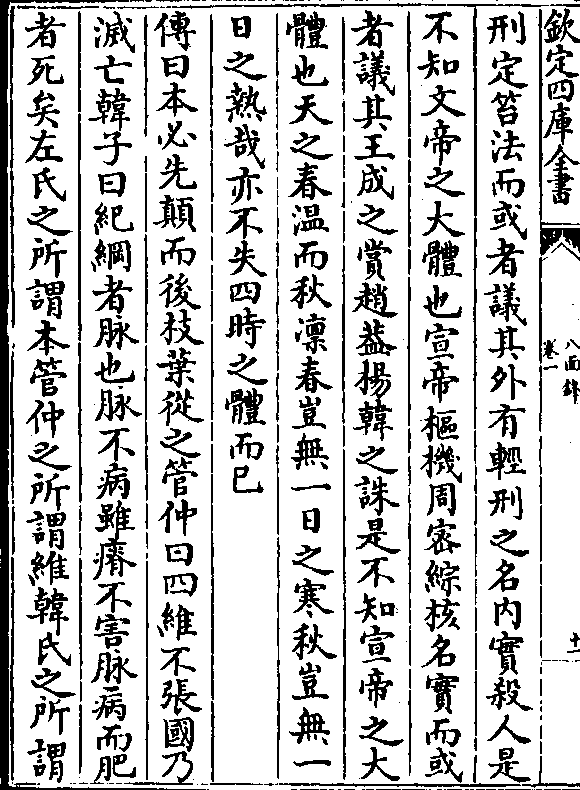 欽定四庫全書
八面鋒
卷一
十一
刑定笞法而或者議其外有輕刑之名内實殺人是
不知文帝之大體也宣帝樞機周密綜核名實而或
者議其王成之賞趙蓋楊韓之誅是不知宣帝之大
體也天之春温而秋凛春豈無一日之寒秋豈無一
日之熱哉亦不失四時之體而已
傳曰本必先顛而後枝葉從之管仲曰四維不張國乃
滅亡韓子曰紀綱者脉也脉不病雖瘠不害脉病而肥
者死矣左氏之所謂本管仲之所謂維韓氏之所謂